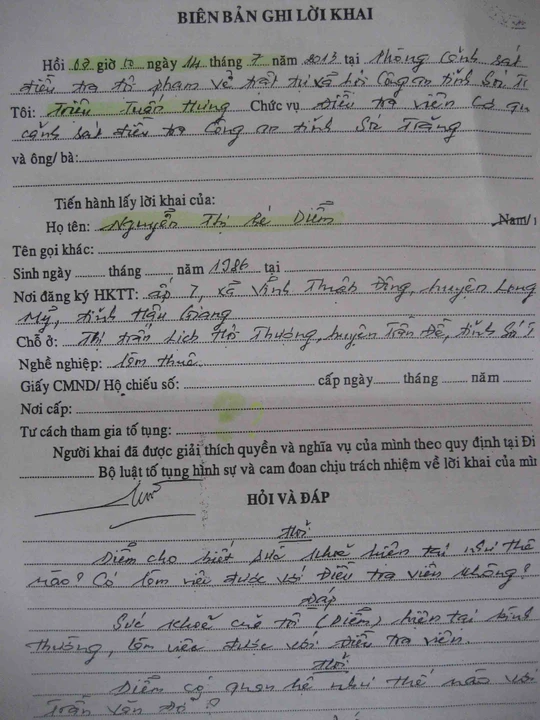 BIÊN BẢN GHI LỜI KHAI
Hồi 07 giờ 10 ngày 14 tháng 7 năm 2013 tại Phòng Cảnh sát
điều tra tội phạm về trật tự xã hội Công an tỉnh Sóc Tr
Tôi: Triệu Tuấn Hưng Chức vụ Điều tra viên Cơ qu
cảnh sát điều tra Công an tỉnh Sóc Trăng
và ông/ bà:
Tiến hành lấy lời khai của:
Họ tên: Nguyễn Thị Bé Diễm Nam/
Tên gọi khác:
Sinh ngày tháng năm 1986 tại
Nơi đăng ký HKTT: ấp 7, xã Vĩnh Thuận Đông, huyện Long
Mỹ, tỉnh Hậu Giang
Chỗ ở: Thị trấn Lịch Hội Thượng, huyện Trần Đề, tỉnh Sóc T
Nghề nghiệp: làm thuê.
Giấy CMND/ Hộ chiếu số: cấp ngày tháng năm
Nơi cấp:
Tư cách tham gia tố tụng:
Người khai đã được giải thích quyền và nghĩa vụ của mình theo quy định tại Đi
Bộ luật tố tụng hình sự và cam đoan chịu trách nhiệm về lời khai của mìn
HỎI VÀ ĐÁP
Hỏi
Diễm cho biết sức khoẻ hiện tại như thế
nào? Có làm việc được với Điều tra viên không?
Đáp
Sức khoẻ của tôi (Diễm) hiện tại bình
thường, làm việc được với Điều tra viên.
Hỏi
Diễm có quan hệ như thế nào với
Trần Văn Đở?